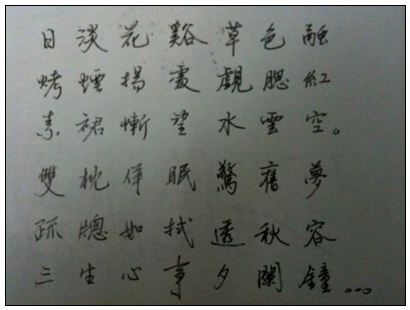 日淡花谿草色融
烤煙揚凌覷腮紅
素裙慚望水雲空。
雙枕佯眠驚舊夢
疏牕如拭透秋容
三生心事夕闌鐘…